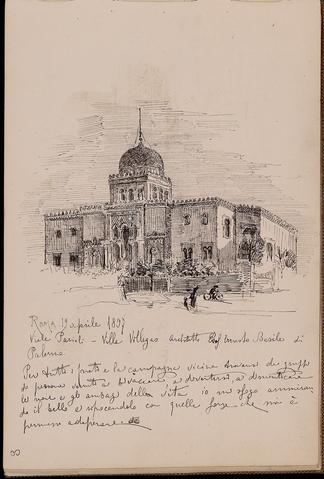 Roma 19 aprile 1897
Viale Parioli - Villa Villegas architetto Prof Ernesto Basile di
Palermo.
Per tutti i prati e la campagna vicina diversi gruppi
di persone venute a divertirsi, a dimenticare
le noie e gli ambagi della vita io mi sfogo ammiran
do il bello e riproducendolo con quelle forze che non è
permesso adoperare
8